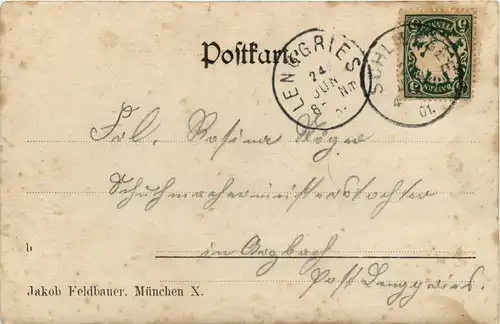 Postkarte
LENGGRIES
24
JUN
8- Nm
SCHL
01.
5 5
BAYERN
Frl. Rosina
Schuhmachermeisterstochter
in
Post Lenggries.
b
Jakob Feldbauer. München X.